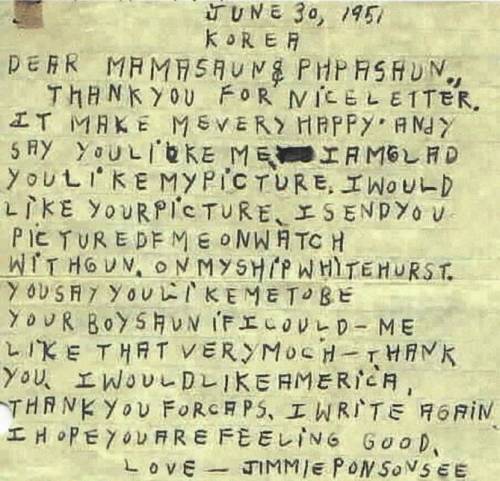 JUNE 30, 1951
KOREA
DEAR MAMASAUN & PAPASAUN.,
THANK YOU FOR NICE LETTER.
IT MAKE ME VERY HAPPY. ANDY
SAY YOU LIKE ME I AM GLAD
YOU LIKE MY PICTURE. I WOULD
LIKE YOUR PICTURE. I SEND YOU
PICTURE OF ME ON WATCH
WITH GUN. ON MY SHIP WHITEHURST.
YOU SAY YOU LIKE ME TO BE
YOUR BOYSAUN IF I COULD - ME
LIKE THAT VERY MOCH - THANK
YOU. I WOULD LIKE AMERICA.
THANK YOU FOR CAPS. I WRITE AGAIN
I HOPE YOU ARE FEELING GOOD.
LOVE - JIMMIE PON SON SEE